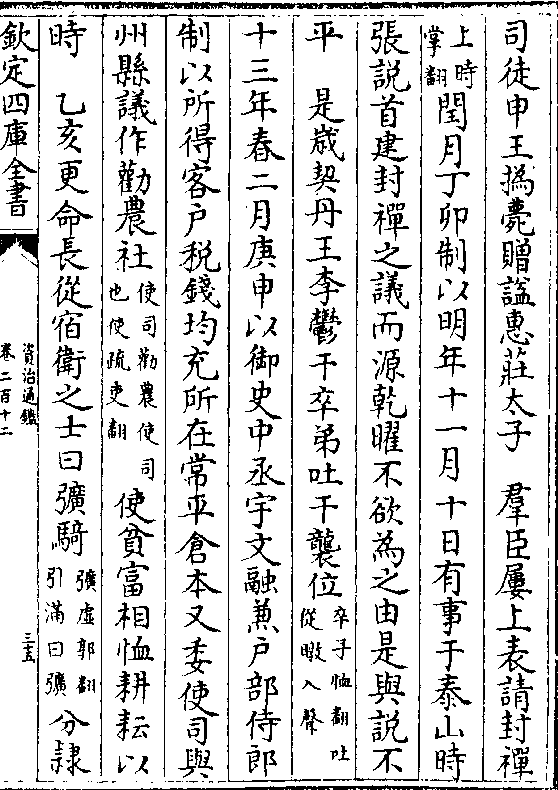 司徒申王撝薨贈諡惠莊太子　羣臣屢上表請封禪
上時掌翻閏月丁卯制以明年十一月十日有事于泰山時
張說首建封禪之議而源乾曜不欲為之由是與說不
平　是歲契丹王李鬱干卒弟吐干襲位卒子恤翻吐從暾入聲
十三年春二月庚申以御史中丞宇文融兼户部侍郎
制以所得客户税錢均充所在常平倉本又委使司與
州縣議作勸農社使司勸農使司也使疏吏翻使貧富相恤耕耘以
時　乙亥更命長從宿衛之士曰彍騎彍虛郭翻引滿曰彍分隷
欽定四庫全書
資治通鑑
卷二百十二
三五